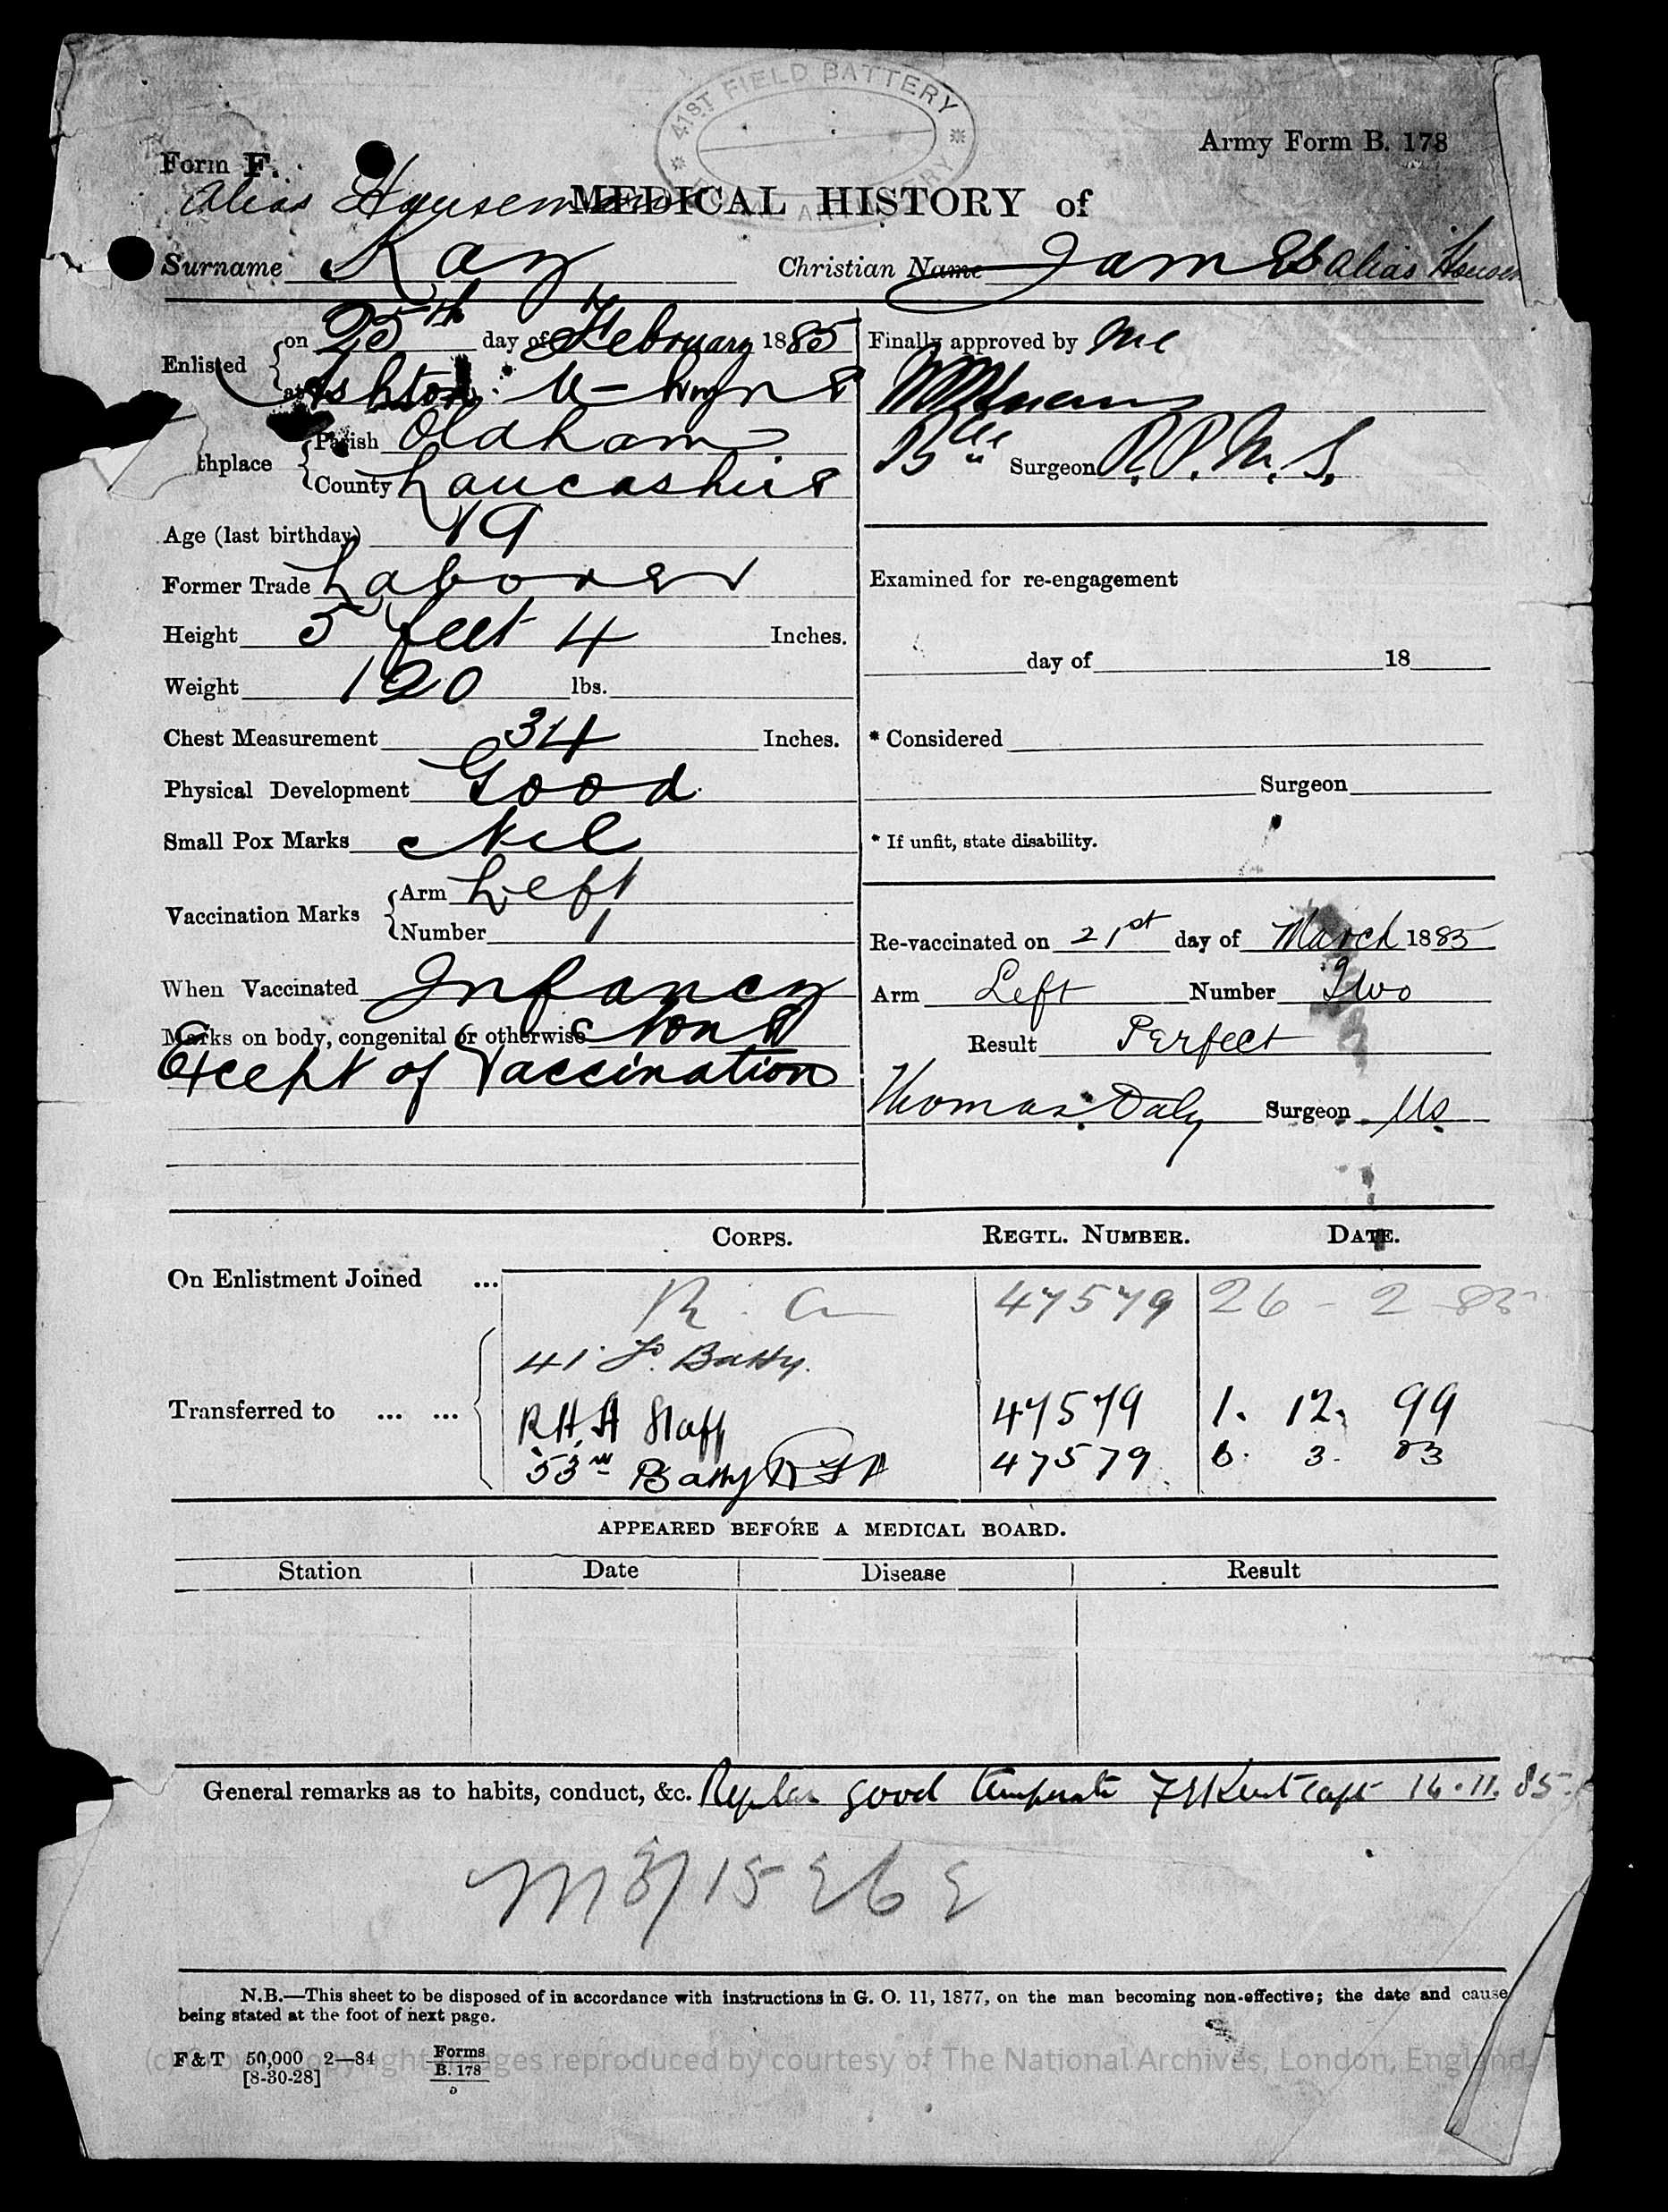 41ST FIELD BATTERY
Army Form B. 178
Form F.
alias Houseman
MEDICAL HISTORY of
Surname Kay Christian Name James alias Housem
Enlisted on 25th day of February 1885
at Ashton U-Lyne
thplace Parish Oldham
County Lancashire
Age (last birthday) 19
Former Trade Laborer
Height 5 feet 4 Inches.
Weight 120 lbs.
Chest Measurement 34 Inches.
Physical Development Good
Small Pox Marks Nil
Vaccination Marks Arm Left
Number 1
When Vaccinated Infancy
Marks on body, congenital or otherwise None
Except of Vaccination
Finally approved by me
Surgeon
Examined for re-engagement
day of 18
* Considered
Surgeon
* If unfit, state disability.
Re-vaccinated on 21st day of March 1885
Arm Left Number Two
Result Perfect
Thomas Daly Surgeon MS
CORPS. REGTL. NUMBER. DATE.
On Enlistment Joined ... R. A 47579 26-2-85
41 F. Batty.
Transferred to ... ... R.H.A Staff 47579 1. 12. 99
53rd Batty RFA 47579 6. 3. 03
APPEARED BEFORE A MEDICAL BOARD.
Station Date Disease Result
General remarks as to habits, conduct, &c. Regular good temperate Capt 14.11.85.
N.B.—This sheet to be disposed of in accordance with instructions in G. O. 11, 1877, on the man becoming non-effective; the date and cause
being stated at the foot of next page.
F & T 50,000 2—84
[8-30-28]
Forms
B. 178
(c) Crown copyright images reproduced by courtesy of The National Archives, London, England.